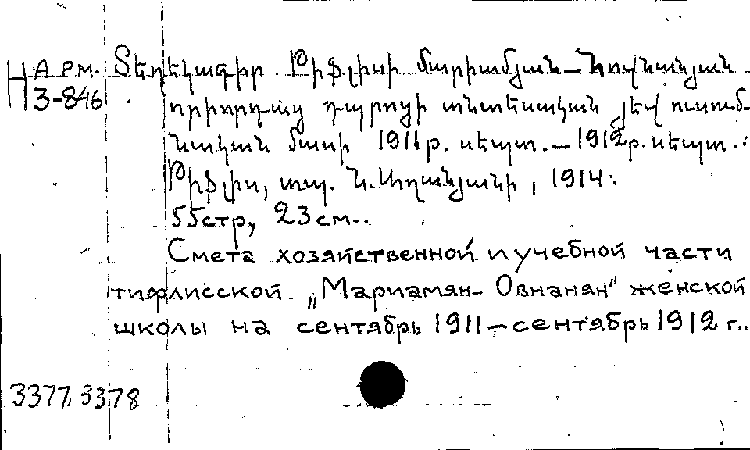 Н АРМ. Տեղեկագիր Թիֆլիսի Մարիամյան–Հովնանյան
3-846 օրիորդաց դպրոցի տնտեսական յեվ ուսում-
նական մասի 1911թ. սեպտ.–1912թ. սեպտ.:
Թիֆլիս, տպ. Ն. Աղանյանի, 1914:
55стр, 23см..
Смета хозяйственной и учебной части
тифлисской „Мариамян-Овнанян" женской
школы на сентябрь 1911–сентябрь 1912 г..
3377, 3378